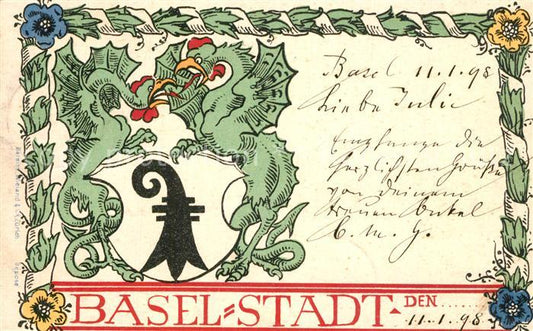 Basel 11.1.98
Liebe Julie
Empfange die
herzlichsten Grüße
von deinem
treuen Onkel
E. M. G.
BASEL=STADT· DEN........
11.1.98